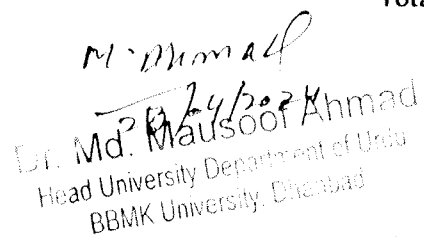 Tota
M. Ahmad
Dr. Md. Mausoof Ahmad
Head University Department of Urdu
BBMK University, Dhanbad